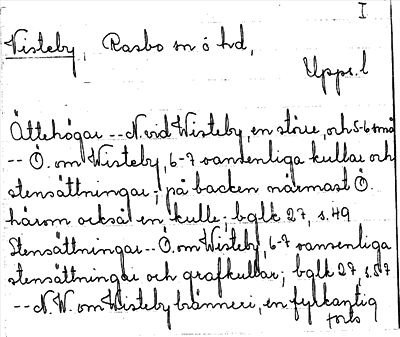 I
Visteby, Rasbo sn o hd,
Upps. l
Ättehögar -- N. vid Wisteby, en större, och 5-6 små
-- Ö. om Wisteby, 6-7 vansenliga kullar och
stensättningar; på backen närmast Ö.
härom också en kulle; bglk 27, s. 49
Stensättningar -- Ö. om Wisteby, 6-7 vansenliga
stensättningar och grafkullar; bglk 27, s. 57
-- N.W. om Wisteby bränneri, en fyrkantig
forts